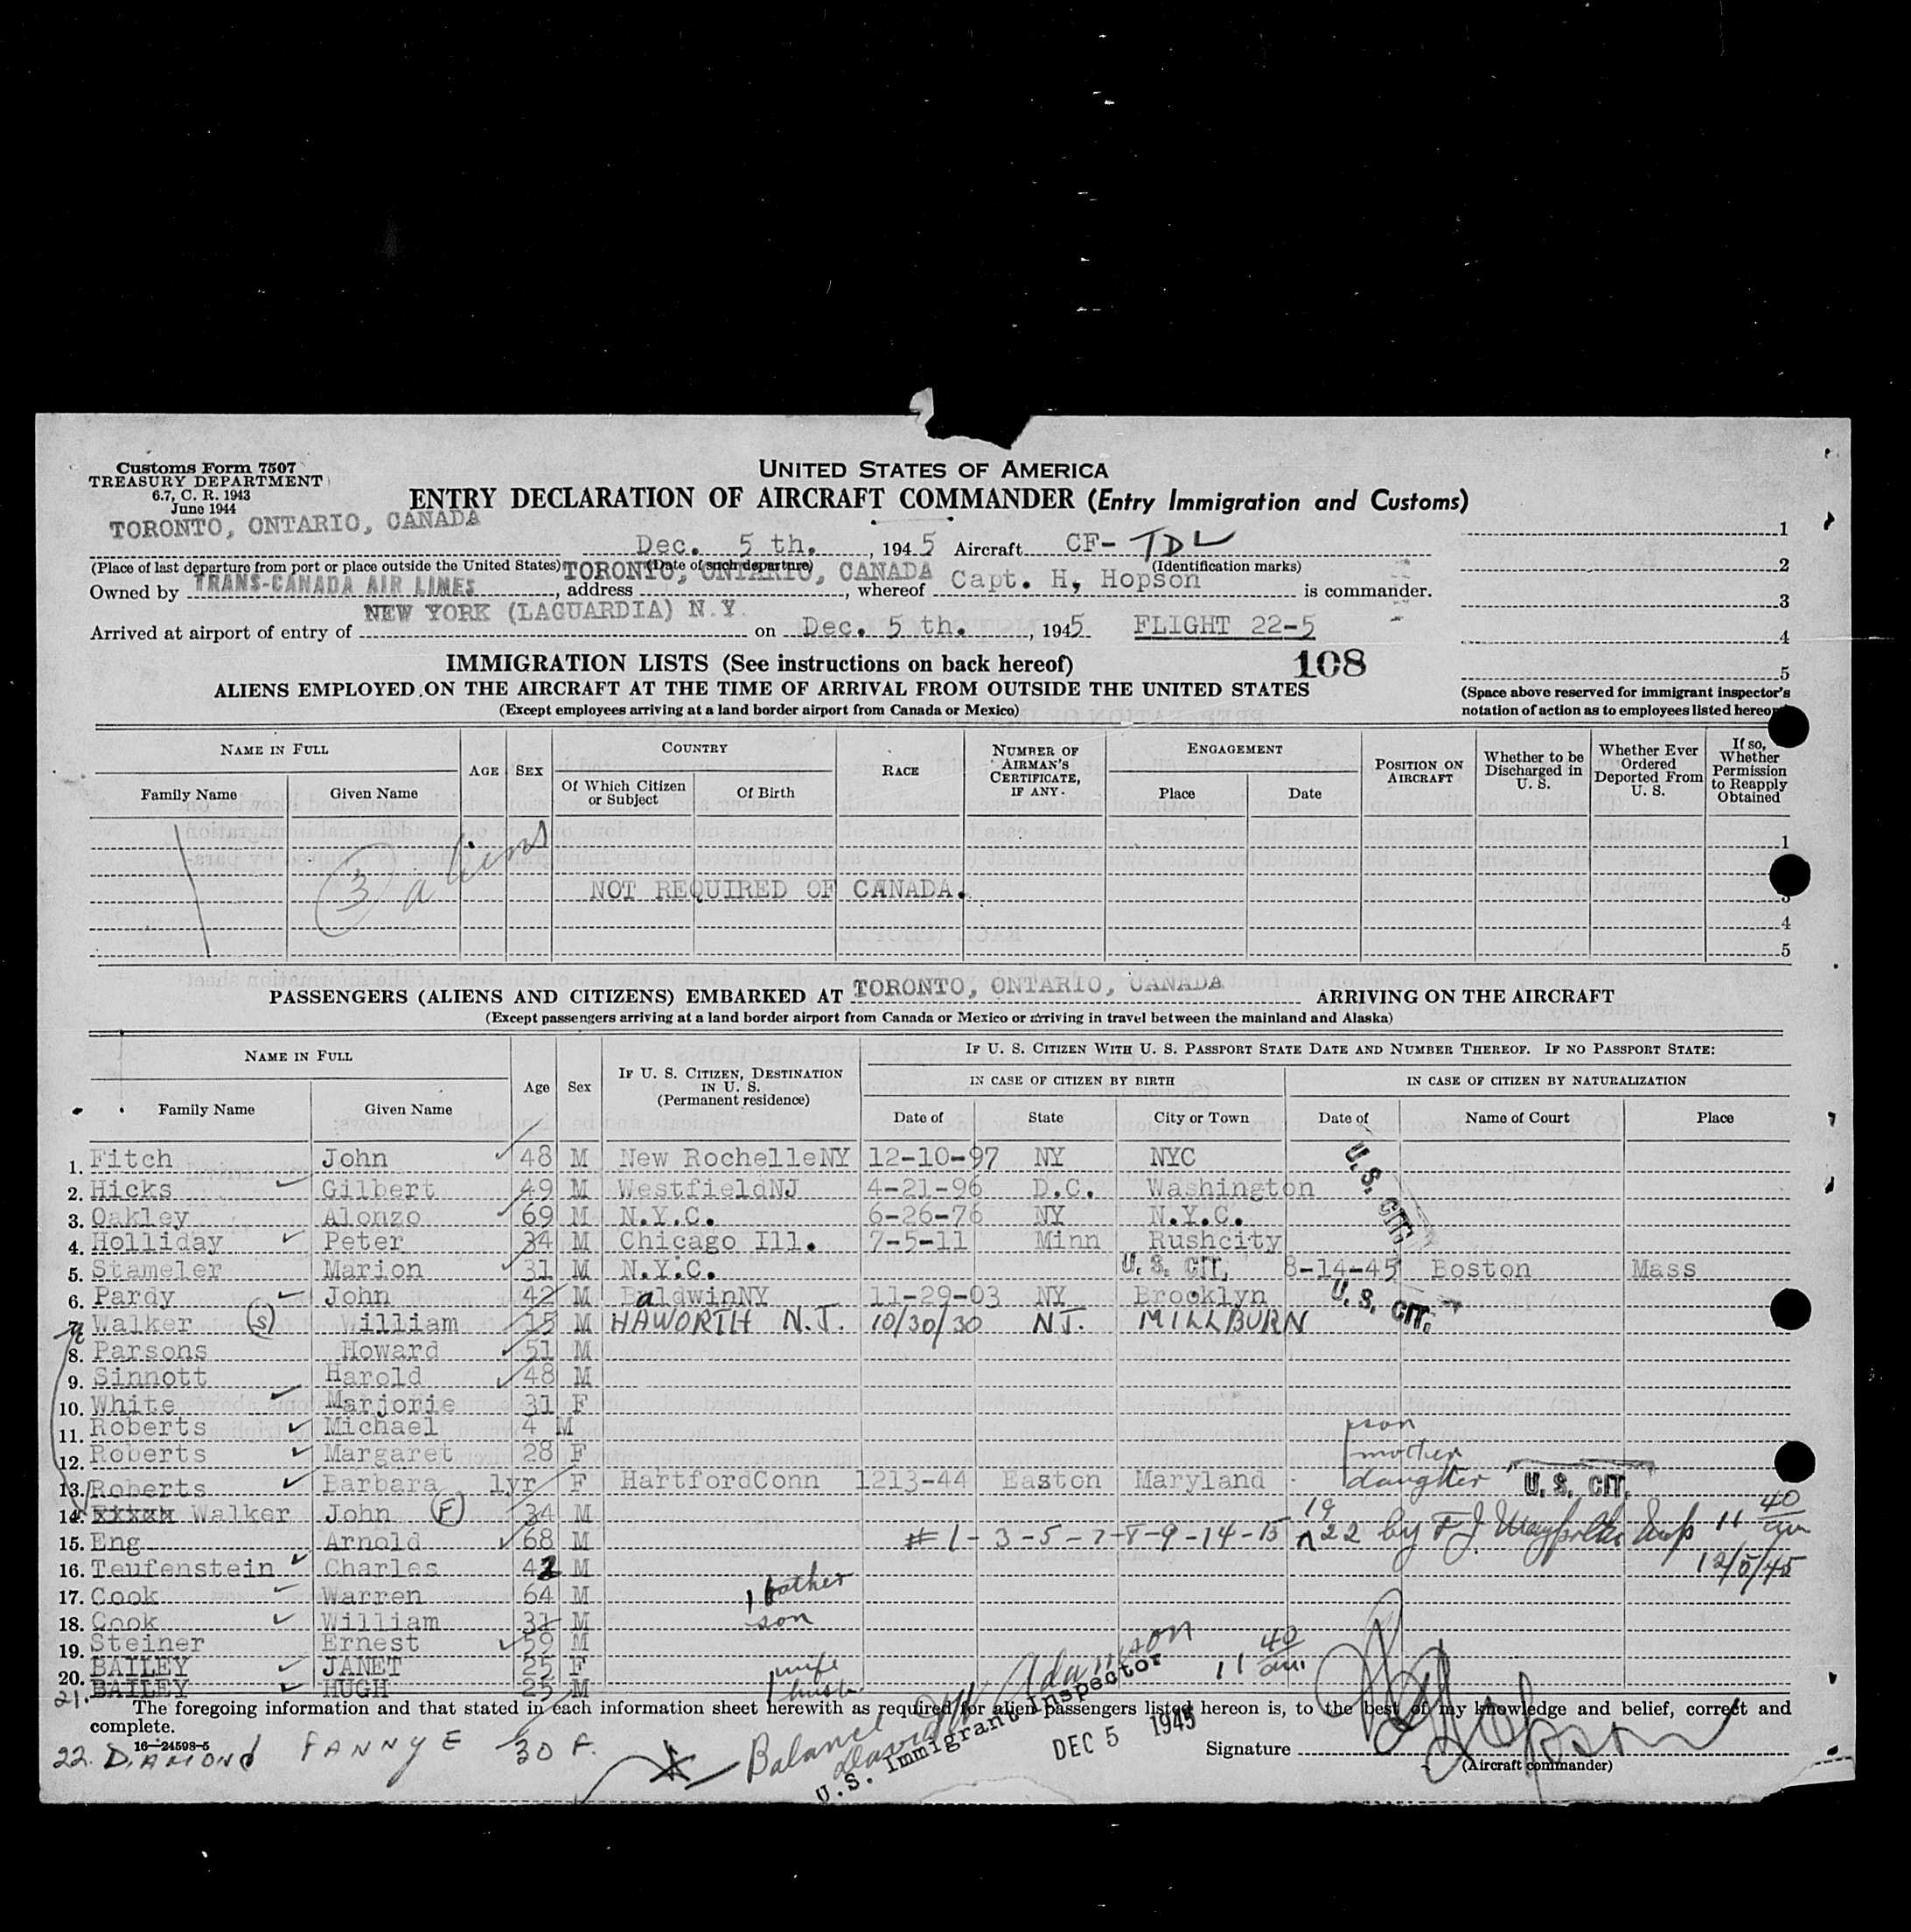 Customs Form 7507
TREASURY DEPARTMENT
6.7, C. R. 1943
June 1944
UNITED STATES OF AMERICA
ENTRY DECLARATION OF AIRCRAFT COMMANDER (Entry Immigration and Customs)
TORONTO, ONTARIO, CANADA Dec. 5 th., 1945 Aircraft CF- TDL
(Place of last departure from port or place outside the United States) (Date of such departure) (Identification marks)
Owned by TRANS-CANADA AIR LINES, address TORONTO, ONTARIO, CANADA, whereof Capt. H, Hopson is commander.
Arrived at airport of entry of NEW YORK (LAGUARDIA) N.Y. on Dec. 5 th., 1945 FLIGHT 22-5
1
2
3
4
5
(Space above reserved for immigrant inspector's notation of action as to employees listed hereon
IMMIGRATION LISTS (See instructions on back hereof) 108
ALIENS EMPLOYED ON THE AIRCRAFT AT THE TIME OF ARRIVAL FROM OUTSIDE THE UNITED STATES
(Except employees arriving at a land border airport from Canada or Mexico)
NAME IN FULL AGE SEX COUNTRY RACE NUMBER OF AIRMAN'S CERTIFICATE, IF ANY ENGAGEMENT POSITION ON AIRCRAFT Whether to be Discharged in U. S. Whether Ever Ordered Deported From U. S. If so, Whether Permission to Reapply Obtained
Family Name Given Name Of Which Citizen or Subject Of Birth Place Date
1
3 aliens
NOT REQUIRED OF CANADA. 3
4
5
PASSENGERS (ALIENS AND CITIZENS) EMBARKED AT TORONTO, ONTARIO, CANADA ARRIVING ON THE AIRCRAFT
(Except passengers arriving at a land border airport from Canada or Mexico or arriving in travel between the mainland and Alaska)
NAME IN FULL Age Sex IF U. S. CITIZEN, DESTINATION IN U. S. (Permanent residence) IF U. S. CITIZEN WITH U. S. PASSPORT STATE DATE AND NUMBER THEREOF. IF NO PASSPORT STATE:
IN CASE OF CITIZEN BY BIRTH IN CASE OF CITIZEN BY NATURALIZATION
Family Name Given Name Date of State City or Town Date of Name of Court Place
1. Fitch John 48 M New RochelleNY 12-10-97 NY NYC U. S. CIT.
2. Hicks Gilbert 49 M WestfieldNJ 4-21-96 D.C. Washington
3. Oakley Alonzo 69 M N.Y.C. 6-26-76 NY N.Y.C.
4. Holliday Peter 34 M Chicago Ill. 7-5-11 Minn Rushcity
5. Stameler Marion 31 M N.Y.C. U. S. CIT. 8-14-45 Boston Mass
6. Pardy John 42 M BaldwinNY 11-29-03 NY Brooklyn U. S. CIT.
7. Walker (S) William 15 M HAWORTH N.J. 10/30/30 NJ. MILLBURN
8. Parsons Howard 51 M
9. Sinnott Harold 48 M
10. White Marjorie 31 F
11. Roberts Michael 4 M son
12. Roberts Margaret 28 F mother
13. Roberts Barbara 1yr F HartfordConn 1213-44 Easton Maryland daughter U. S. CIT.
14. xxxxx Walker John (F) 34 M
15. Eng Arnold 68 M #1-3-5-7-8-9-14-15 19 22 by F J Insp 11 40 am
16. Teufenstein Charles 42 M 12/5/45
17. Cook Warren 64 M father
18. Cook William 31 M son
19. Steiner Ernest 59 M
20. BAILEY JANET 25 F wife
21. BAILEY HUGH 25 M husb
The foregoing information and that stated in each information sheet herewith as required for alien passengers listed hereon is, to the best of my knowledge and belief, correct and complete.
16-24598-5
22. DIAMOND FANNYE 30 F.
Balance Adamson 11 40 am.
U. S. Immigrant Inspector
DEC 5 1945
Signature Hopson
(Aircraft commander)